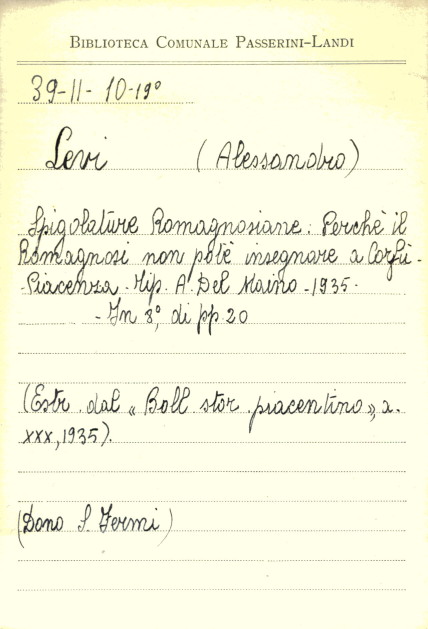 BIBLIOTECA COMUNALE PASSERINI-LANDI
39-II-10-19°
Levi (Alessandro)
Spigolature Romagnosiane: Perchè il
Romagnosi non potè insegnare a Corfù -
- Piacenza - Tip. A. Del Maino - 1935 -
- In 8°, di pp 20
(Estr. dal « Boll stor. piacentino », a.
XXX, 1935).
(Dono S. Fermi)